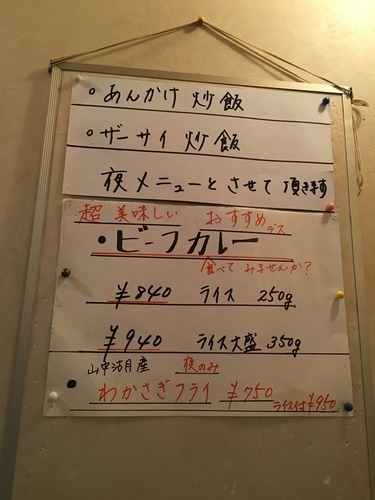 ・あんかけ炒飯
・ザーサイ炒飯
夜メニューとさせて頂きます
超美味しい おすすめデス
・ビーフカレー
食べてみませんか?
¥840 ライス 250g
¥940 ライス大盛 350g
山中湖産 夜のみ
・わかさぎフライ ¥750 ライス付¥950